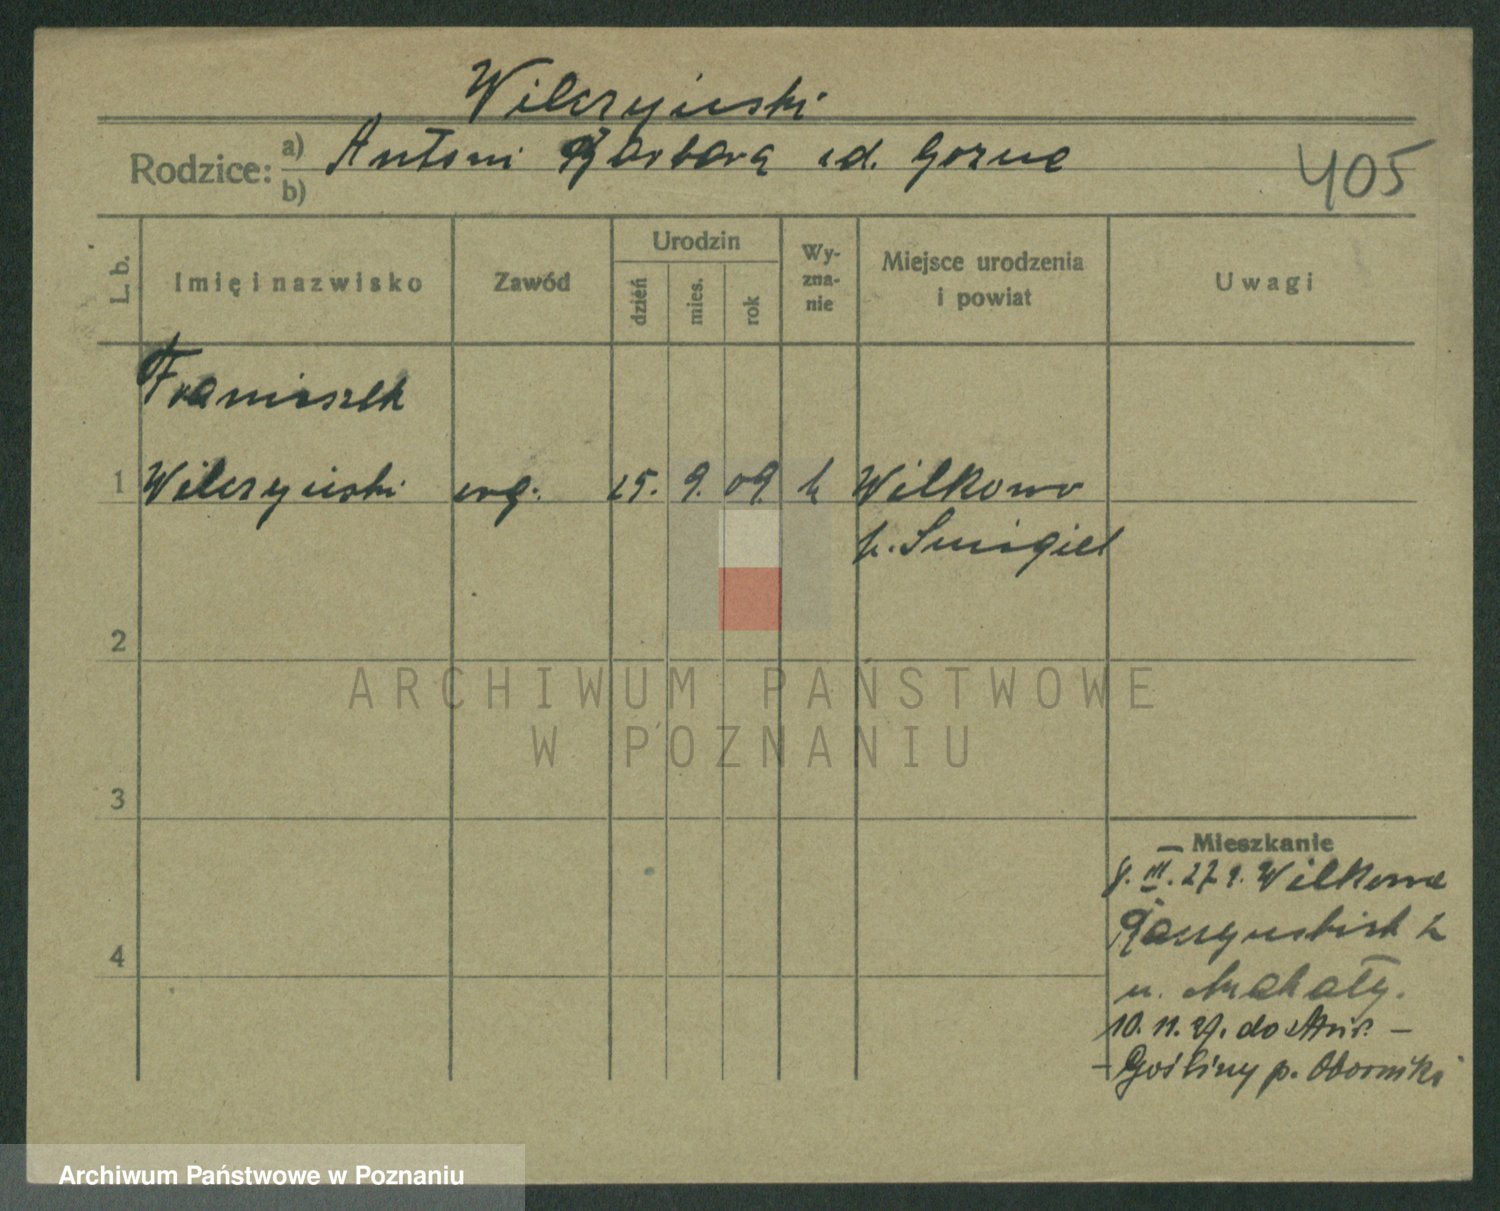 Wilczyński
Rodzice: a) Antoni Barbara zd. Gorna
b)
405
L. b.
Imię i nazwisko
Zawód
Urodzin
dzień
mies.
rok
Wyzna-
nie
Miejsce urodzenia
i powiat
Uwagi
Franciszek
1 Wilczyński 15. 9. 09. k Wilkowo
p. Śmigiel
2
3
4
Mieszkanie
Wilkowo
u.
10. 11. 27. do Mur. -
- Gośliny p. Oborniki
ARCHIWUM PAŃSTWOWE
W POZNANIU
Archiwum Państwowe w Poznaniu